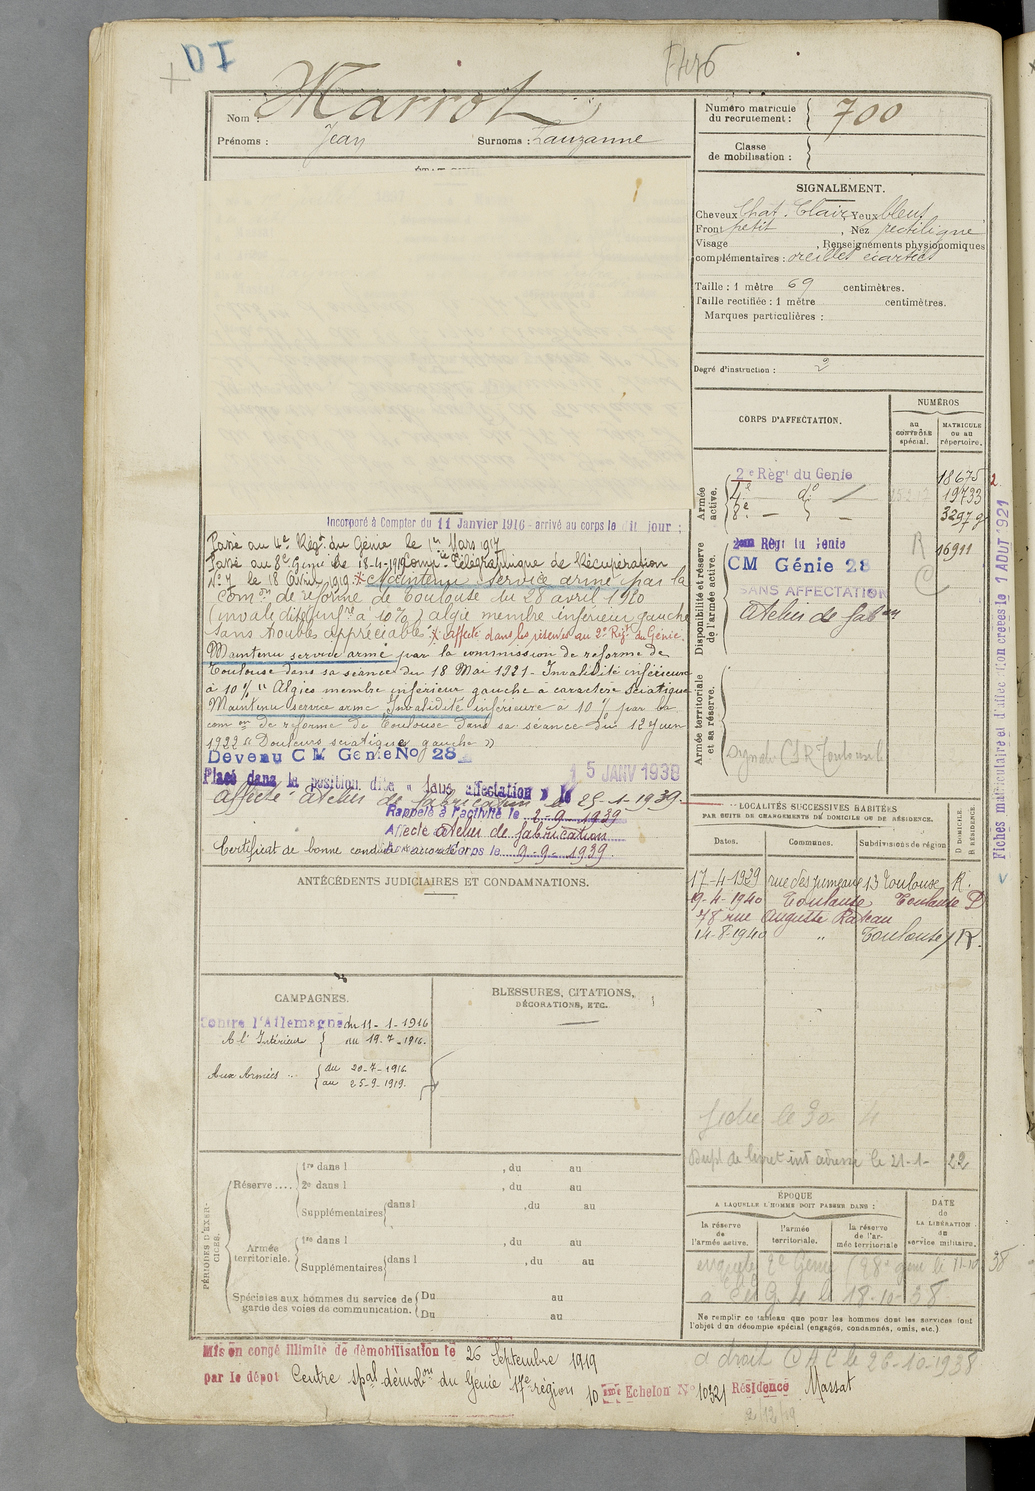 DI
Nom : Marrot
Prénoms : Jean Surnoms : Lauzanne
Numéro matricule du recrutement : 700
Classe de mobilisation :
SIGNALEMENT.
Cheveux Chat. Clair, Yeux bleus
Front petit , Nez rectiligne
Visage , Renseignements physionomiques
complémentaires : oreilles écartées
Taille : 1 mètre 69 centimètres.
Taille rectifiée : 1 mètre centimètres.
Marques particulières :
Degré d'instruction : 2
CORPS D'AFFECTATION.
NUMÉROS
au CONTRÔLE spécial.
MATRICULE ou au répertoire.
Armée active.
2e Régt du Génie 18675
4e do — 19733
8e — 3297
Disponibilité et réserve de l'armée active.
2eme Régt du Génie R 16911
CM Génie 28
SANS AFFECTATION
Atelier de fabon
Armée territoriale et sa réserve.
Fiches matriculaire et d'affectation créées le 1 AOUT 1921
Incorporé à Compter du 11 Janvier 1916 - arrivé au corps le dit jour ;
Passé au 4e Régt du Génie le 1er Mars 1917
Passé au 8e Génie le 18-4-1919 Compie Télégraphique de Récupération
No 7 le 18 Avril 1919. Maintenu service armé par la
Comon de réforme de Toulouse du 28 avril 1920
(invalidité infre à 10%) algie membre inférieur gauche
sans troubles appréciables. affecté dans les réserves au 2e Régt du Génie.
Maintenu service armé par la commission de réforme de
Toulouse dans sa séance du 18 Mai 1921 - Invalidité inférieure
à 10% " Algies membre inférieur gauche à caractère sciatique
Maintenu service armé Invalidité inférieure à 10% par la
comon de réforme de Toulouse dans sa séance du 12 juin
1922 " Douleurs sciatique gauche "
Devenu CM Génie No 28
Placé dans la position dite « sans affectation » le 15 JANV 1938
Affecté Atelier de fabrication le 25-1-1939.
Rappelé à l'activité le 2-9-1939
Affecté atelier de fabrication
Certificat de bonne conduite accordé
corps le 9-9-1939.
ANTÉCÉDENTS JUDICIAIRES ET CONDAMNATIONS.
LOCALITÉS SUCCESSIVES HABITÉES
PAR SUITE DE CHANGEMENTS DE DOMICILE OU DE RÉSIDENCE.
Dates. Communes. Subdivisions de région
D DOMICILE. R RÉSIDENCE.
17-4-1929 rue des jumeaux 13 Toulouse R.
9-4-1940 Toulouse Toulouse D
78 rue Auguste Rateau
14-8-1940 " Toulouse R.
le 21-1-22
CAMPAGNES.
Contre l'Allemagne du 11-1-1916
A l'Intérieur au 19-7-1916.
Aux Armées du 20-7-1916
au 25-9-1919.
BLESSURES, CITATIONS,
DÉCORATIONS, ETC.
PÉRIODES D'EXERCICES.
Réserve ....
1re dans l , du au
2e dans l , du au
Supplémentaires dans l , du au
Armée territoriale.
1re dans l , du au
Supplémentaires dans l , du au
Spéciales aux hommes du service de garde des voies de communication.
Du au
Du au
ÉPOQUE
A LAQUELLE L'HOMME DOIT PASSER DANS :
la réserve de l'armée active.
l'armée territoriale.
la réserve de l'armée territoriale
DATE de LA LIBÉRATION du service militaire.
18-10-38
Ne remplir ce tableau que pour les hommes dont les services font
l'objet d'un décompte spécial (engagés, condamnés, omis, etc.)
a droit C A C le 26-10-1938
Mis en congé illimité de démobilisation le 26 Septembre 1919
par le dépot Centre spal démobon du Génie 17e région 10 eme Echelon No 10321 Résidence Massat